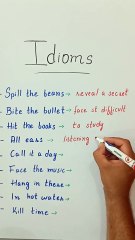 Idioms
- Spill the beans → reveal a secret
- Bite the bullet → face st difficult
- Hit the books → to study
- All ears → listening
- Call it a day →
- Face the music →
- Hang in there →
- In hot water →
- Kill time →